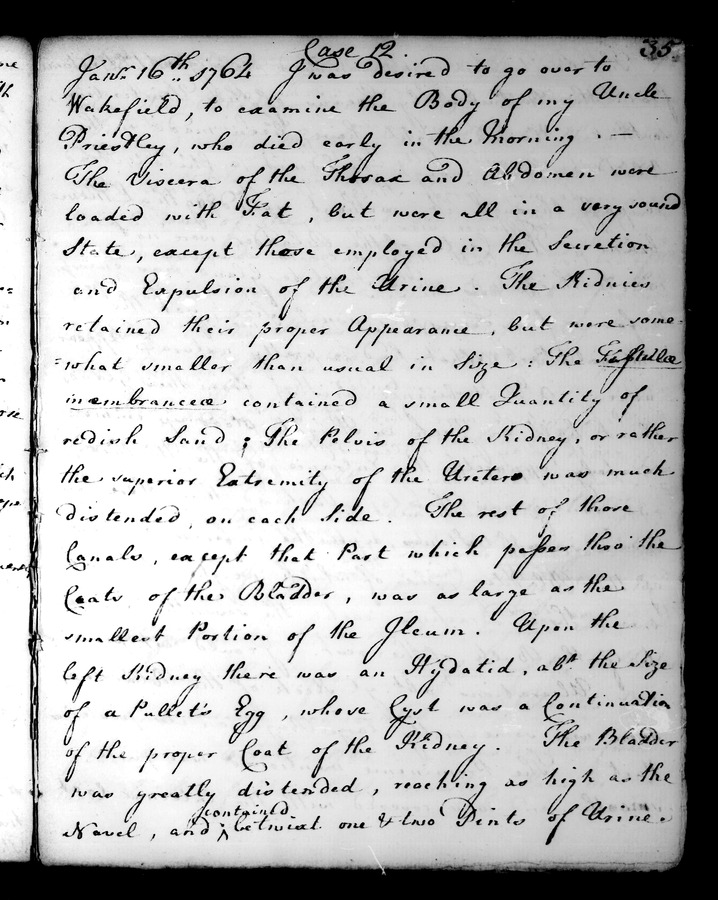 35
Case 12.
Janr. 16th. 1764 I was desired to go over to
Wakefield, to examine the Body of my Uncle
Priestley, who died early in the Morning. —
The Viscera of the Thorax and Abdomen were
loaded with Fat, but were all in a very sound
State, except those employed in the Secretion
and Expulsion of the Urine. The Kidnies
retained their proper Appearance, but were some-
=what smaller than usual in Size: The
membranceæ contained a small Quantity of
redish Sand; The Pelvis of the Kidney, or rather
the superior Extremity of the Ureters was much
distended, on each Side. The rest of those
Canals, except that Part which passes thro' the
Coats of the Bladder, was as large as the
smallest Portion of the Ileum. Upon the
left Kidney there was an Hydatid, abt. the Size
of a Pullet's Egg, whose Cyst was a Continuation
of the proper Coat of the Kidney. The Bladder
was greatly distended, reaching as high as the
contained
Navel, and ^ betwixt one & two Pints of Urine.